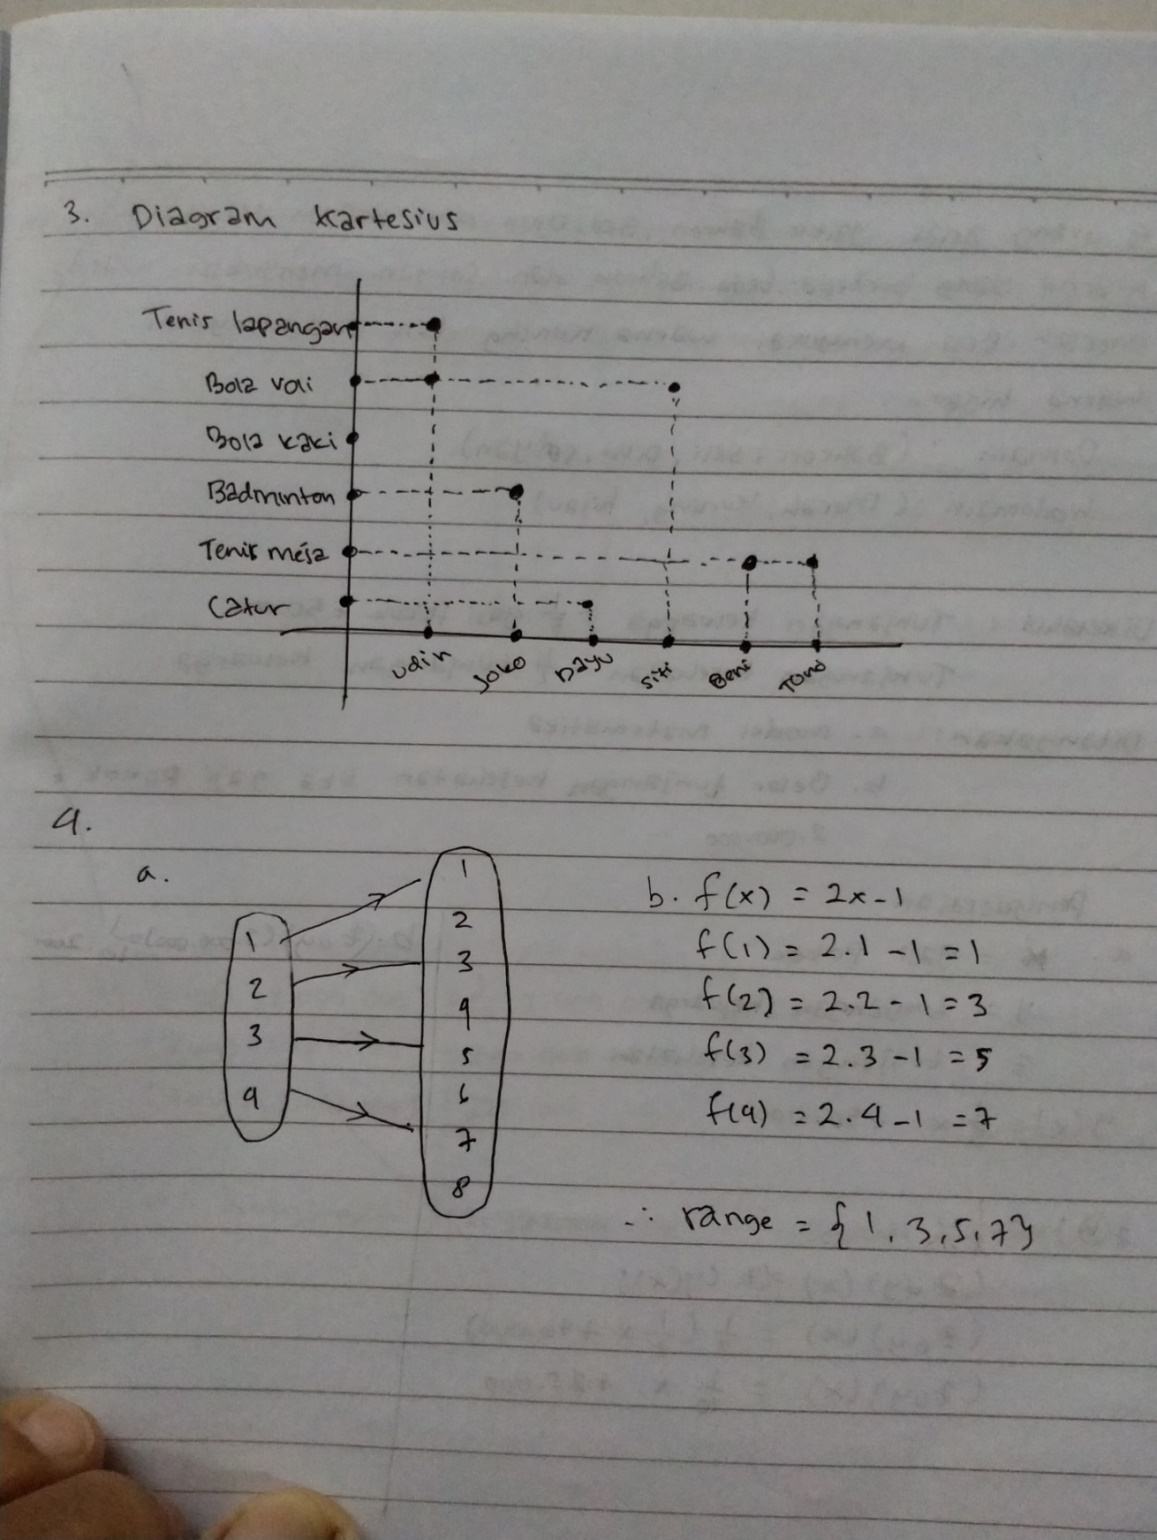 3. Diagram Kartesius
Tenis lapangan
Bola voli
Bola kaki
Badminton
Tenis meja
Catur
Udin Joko Dayu Siti Beni Tono
4.
a.
1
2
3
4
1
2
3
4
5
6
7
8
b. f(x) = 2x-1
f(1) = 2.1 - 1 = 1
f(2) = 2.2 - 1 = 3
f(3) = 2.3 - 1 = 5
f(4) = 2.4 - 1 = 7
∴ range = {1, 3, 5, 7}